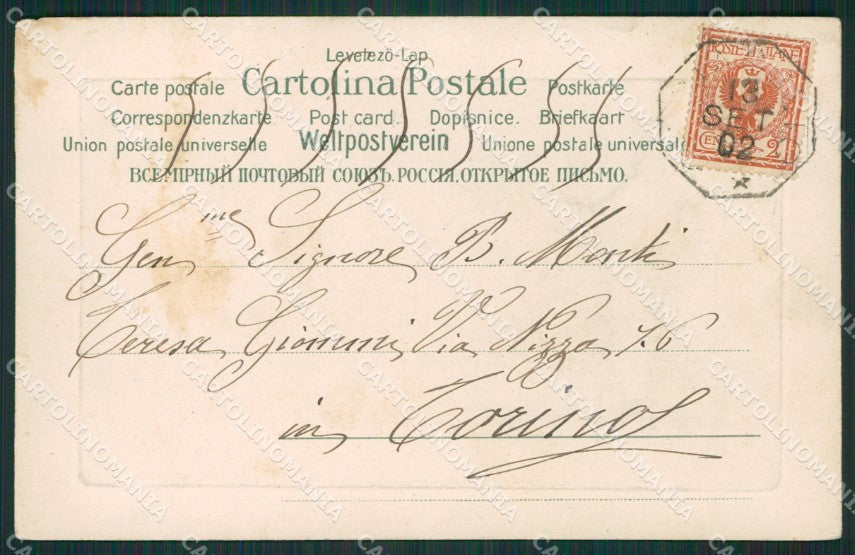 Levelező-Lap
Carte postale Cartolina Postale Postkarte
Correspondenzkarte. Post card. Dopisnice. Briefkaart
Union postale universelle Weltpostverein Unione postale universale
ВСЕМІРНЫЙ ПОЧТОВЫЙ СОЮЗЪ. РОССІЯ. ОТКРЫТОЕ ПИСЬМО.
POSTE ITALIANE
13
SET
02
2
Gen.me Signore B. Monti
Teresa Giommi Via Nizza 76
in Torino
CARTOLINOMANIA